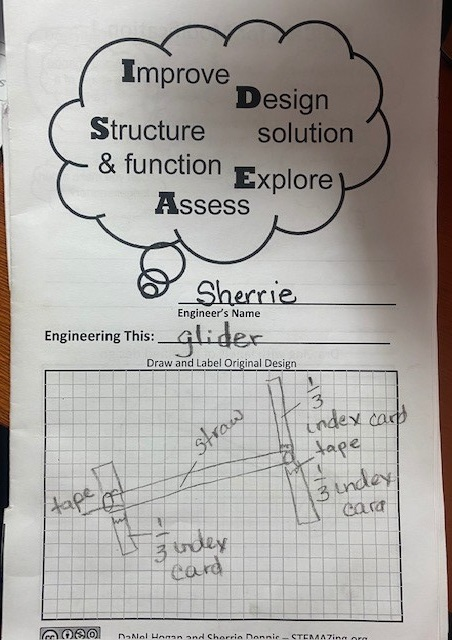 Improve
Design
Structure solution
& function Explore
Assess
Sherrie
Engineer's Name
Engineering This: glider
Draw and Label Original Design
1/3
index card
straw
tape
1/3 index
card
tape
1/3 index
card
DaNel Hogan and Sherrie Dennis – STEMAZing.org